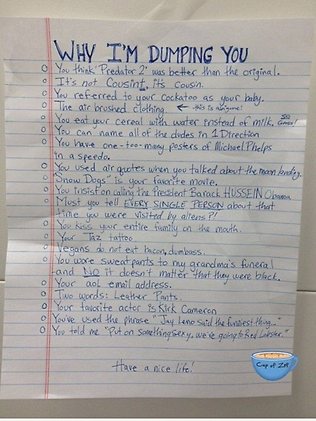 WHY I'M DUMPING YOU
You think "Predator 2" was better than the original.
It's not CousinT, its cousin.
You referred to your cockatoo as your baby.
The air brushed clothing. ← this is awesome!
You eat your cereal with water instead of milk.
You can name all of the dudes in 1Direction
You have one-too-many posters of Michael Phelps
in a speedo.
You used air quotes when you talked about the moon landing.
"Snow Dogs" is your favorite movie.
You insist on calling the President Barack HUSSEIN Obama
Must you tell EVERY SINGLE PERSON about that
time you were visited by aliens?!
You kiss your entire family on the mouth.
Your Taz tattoo.
Vegans do not eat bacon, dumbass.
You wore sweatpants to my grandma's funeral
and NO it doesn't matter that they were black.
Your aol email address.
Two words: Leather Pants.
Your favorite actor is Kirk Cameron
You've used the phrase "Jay Leno said the funniest thing..."
You told me "Put on something sexy, we're going to Red Lobster."
Have a nice life!
Cup of Zup